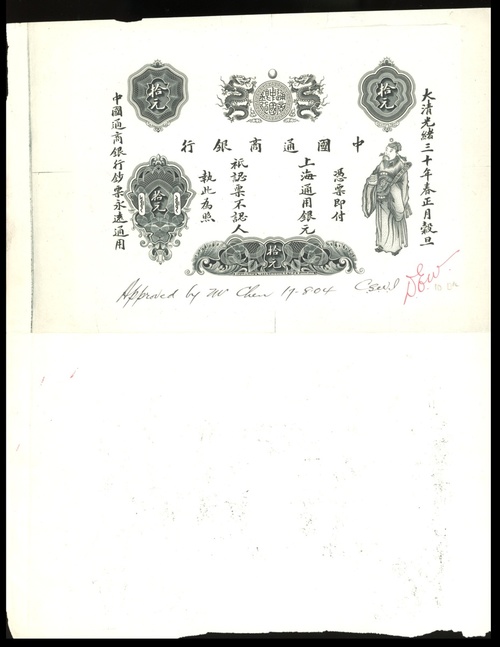 拾元
拾元
大清光緒三十年春正月穀旦
中國通商銀行
憑票即付
上海通用銀元
祇認票不認人
執此為照
拾元
拾元
中國通商銀行鈔票永遠通用
Approved by Mr Chen 17-8-04
DEW.